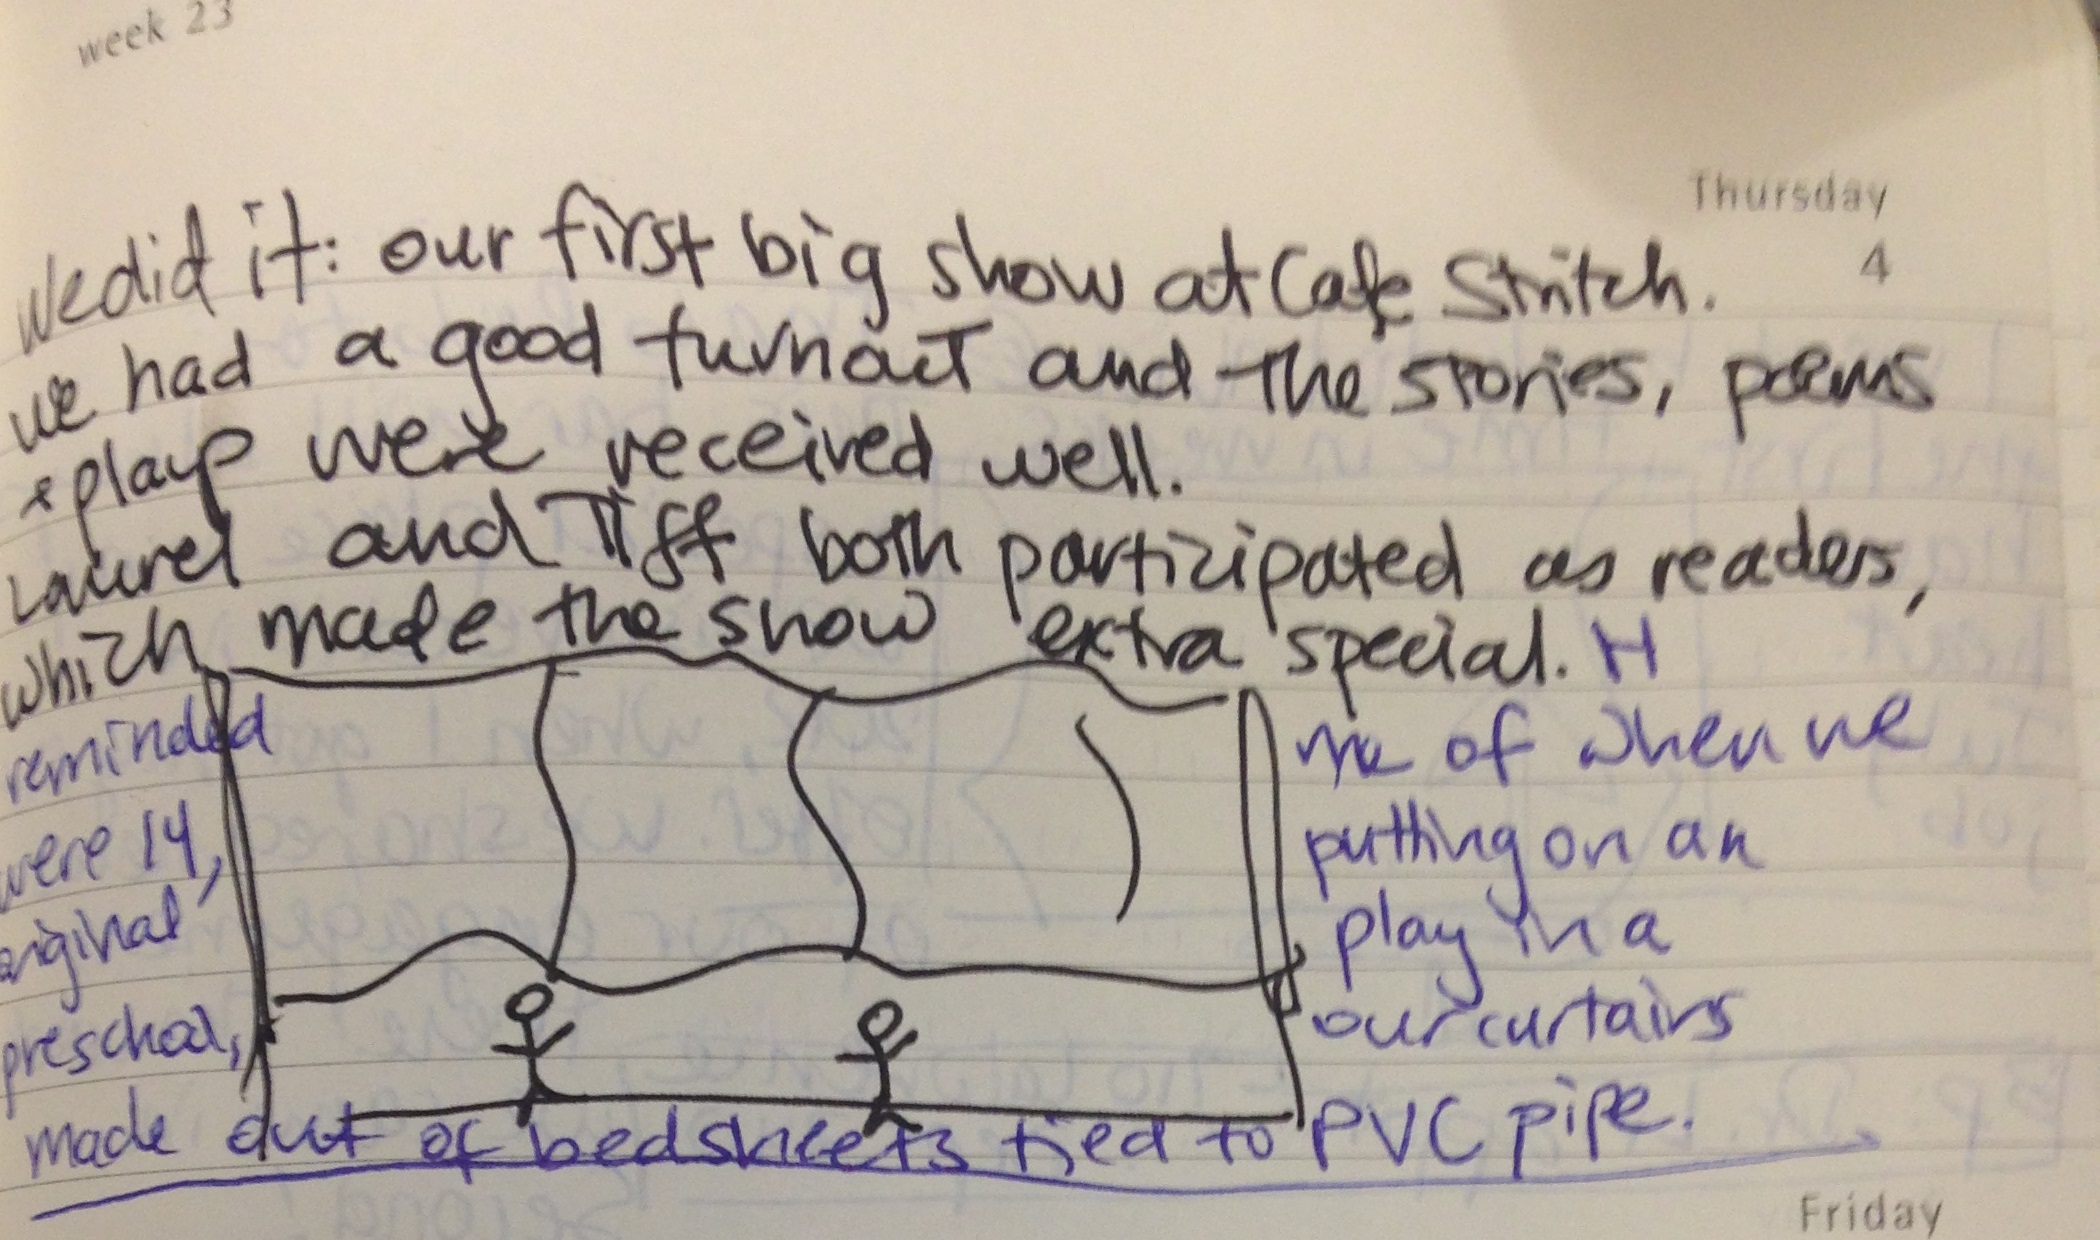 week 23
Thursday
4
We did it: our first big show at Cafe Stritch.
we had a good turnout and the stories, poems
+ plays were received well.
Laurel and Tiff both participated as readers,
which made the show extra special. It
reminded me of when we
were 14, putting on an
original play in a
preschool, our curtains
made out of bedsheets tied to PVC pipe.
Friday